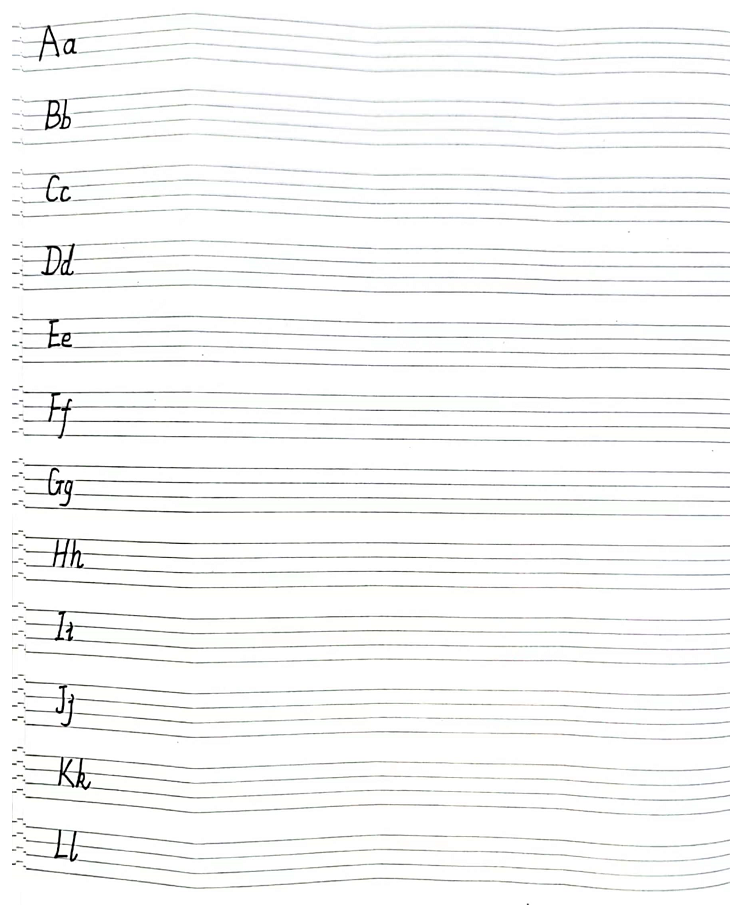 Aa
Bb
Cc
Dd
Ee
Ff
Gg
Hh
Ii
Jj
Kk
Ll